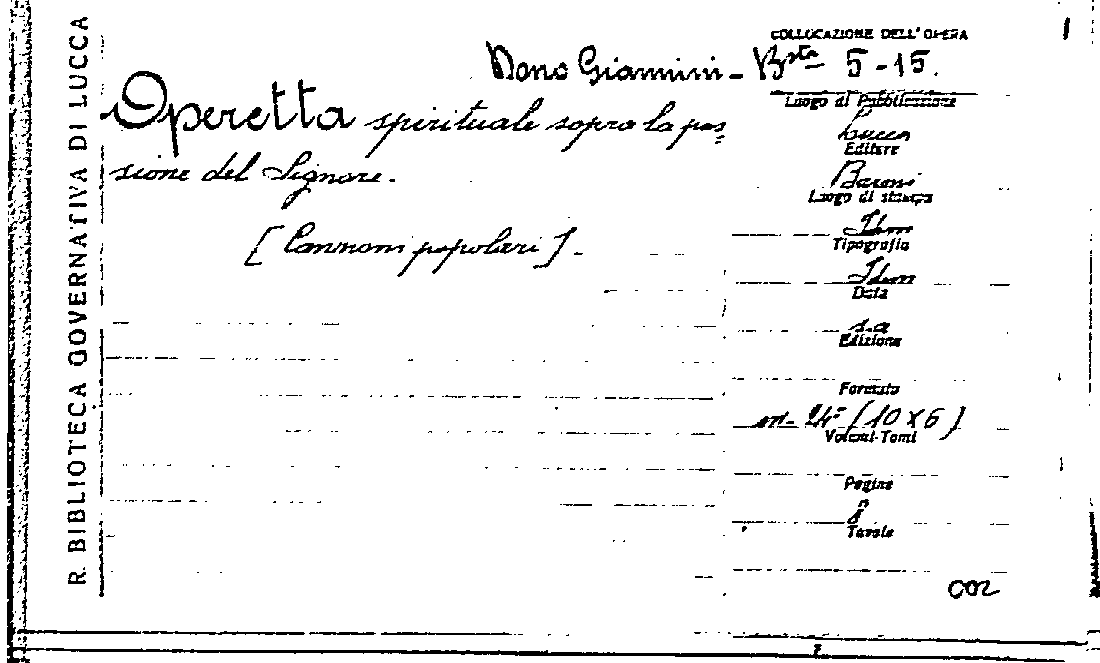 R. BIBLIOTECA GOVERNATIVA DI LUCCA
COLLOCAZIONE DELL'OPERA
Dono Giannini - Bsta 5-15.
Operetta spirituale sopra la pas=
sione del Signore.
[Canzoni popolari].
Luogo di Pubblicazione
Lucca
Editore
Baroni
Luogo di stampa
Idem
Tipografia
Idem
Data
s.a
Edizione
Formato
in-24º (10x6)
Volumi-Tomi
Pagine
8
Tavole